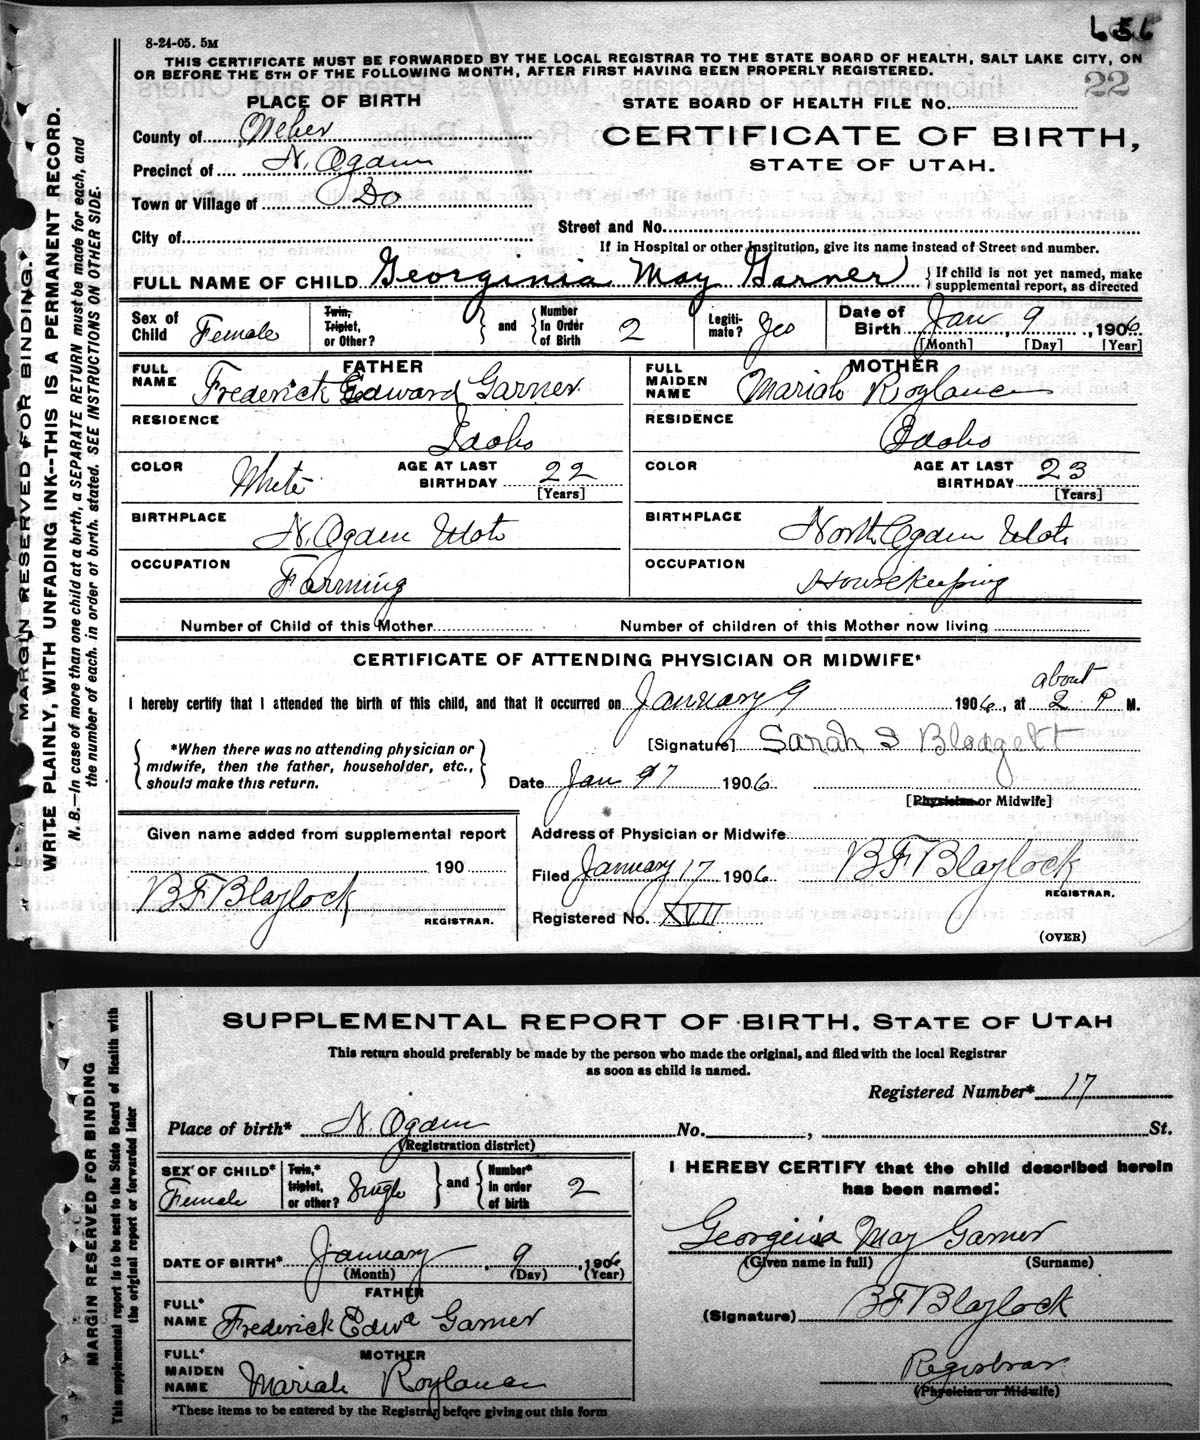 656
8-24-05. 5M
THIS CERTIFICATE MUST BE FORWARDED BY THE LOCAL REGISTRAR TO THE STATE BOARD OF HEALTH, SALT LAKE CITY, ON
OR BEFORE THE 5TH OF THE FOLLOWING MONTH, AFTER FIRST HAVING BEEN PROPERLY REGISTERED.
22
PLACE OF BIRTH
STATE BOARD OF HEALTH FILE No.
County of Weber
CERTIFICATE OF BIRTH,
Precinct of N. Ogden
STATE OF UTAH.
Town or Village of Do
City of
Street and No.
If in Hospital or other Institution, give its name instead of Street and number.
FULL NAME OF CHILD Georginia May Garner } If child is not yet named, make
supplemental report, as directed
Sex of Child Female
Twin, Triplet, or Other? } and { Number In Order of Birth 2
Legitimate? Yes
Date of Birth Jan 9, 1906
[Month] [Day] [Year]
FATHER
FULL NAME Frederick Edward Garner
MOTHER
FULL MAIDEN NAME Mariah Roylance
RESIDENCE Idaho
RESIDENCE Idaho
COLOR White AGE AT LAST BIRTHDAY 22 [Years]
COLOR AGE AT LAST BIRTHDAY 23 [Years]
BIRTHPLACE N. Ogden Utah
BIRTHPLACE North Ogden Utah
OCCUPATION Farming
OCCUPATION Housekeeping
Number of Child of this Mother Number of children of this Mother now living
CERTIFICATE OF ATTENDING PHYSICIAN OR MIDWIFE*
I hereby certify that I attended the birth of this child, and that it occurred on January 9 1906, at about 2 P M.
{ *When there was no attending physician or
midwife, then the father, householder, etc.,
should make this return. }
[Signature] Sarah S Blodgett
Date Jan 97 1906
[Physician or Midwife]
Given name added from supplemental report
190
B F Blaylock
REGISTRAR.
Address of Physician or Midwife
Filed January 17 1906 B F Blaylock
REGISTRAR.
Registered No. XVII
(OVER)
MARGIN RESERVED FOR BINDING.
WRITE PLAINLY, WITH UNFADING INK--THIS IS A PERMANENT RECORD.
N. B.—In case of more than one child at a birth, a SEPARATE RETURN must be made for each, and
the number of each, in order of birth, stated. SEE INSTRUCTIONS ON OTHER SIDE.
SUPPLEMENTAL REPORT OF BIRTH. STATE OF UTAH
This return should preferably be made by the person who made the original, and filed with the local Registrar
as soon as child is named.
Registered Number* 17
Place of birth* N. Ogden No. , St.
(Registration district)
SEX OF CHILD* Female
Twin,* triplet, or other? Single } and { Number* in order of birth 2
I HEREBY CERTIFY that the child described herein
has been named:
Georginia May Garner
(Given name in full) (Surname)
DATE OF BIRTH* January 9, 1906
(Month) (Day) (Year)
FATHER
FULL* NAME Frederick Edwd Garner
(Signature) B F Blaylock
MOTHER
FULL* MAIDEN NAME Mariah Roylance
Registrar
(Physician or Midwife)
*These items to be entered by the Registrar before giving out this form
MARGIN RESERVED FOR BINDING
This supplemental report is to be sent to the State Board of Health with
the original report or forwarded later